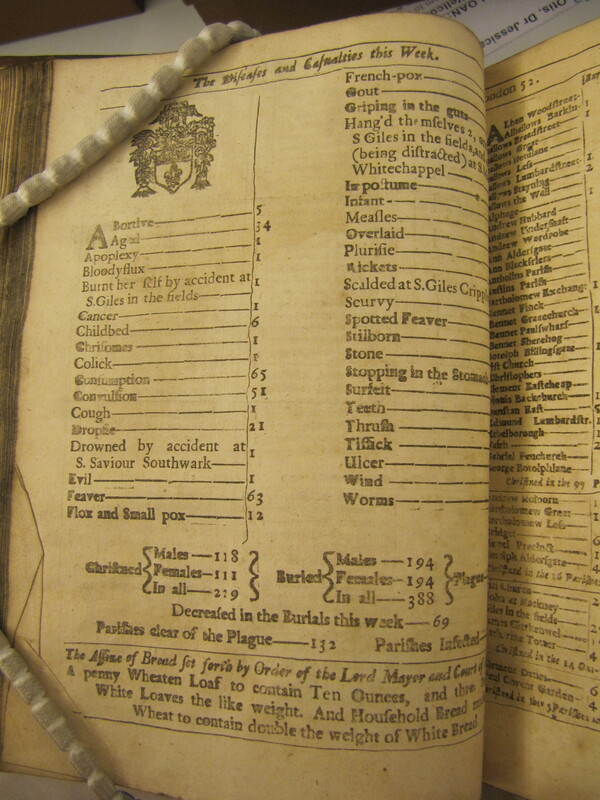 OAN
Otis, Dr Jessic
The Diseases and Casualties this Week.
ABortive — 5
Aged — 34
Apoplexy — 1
Bloodyflux — 1
Burnt her self by accident at
S. Giles in the fields — 1
Cancer — 1
Childbed — 6
Chrisomes — 1
Colick — 1
Consumption — 65
Convulsion — 51
Cough — 1
Dropsie — 21
Drowned by accident at
S. Saviour Southwark — 1
Evil — 1
Feaver — 63
Flox and Small pox — 12
French-pox
Gout
Griping in the guts
Hang'd themselves 2,
S Giles in the fields, and
(being distracted) at S.
Whitechappel
Impostume
Infant
Measles
Overlaid
Plurisie
Rickets
Scalded at S. Giles Cripp
Scurvy
Spotted Feaver
Stilborn
Stone
Stopping in the Stomac
Surfeit
Teeth
Thrush
Tissick
Ulcer
Wind
Worms
Christned { Males — 118 Females — 111 In all — 229 }
Buried { Males — 194 Females — 194 In all — 388 } Plague
Decreased in the Burials this week — 69
Parishes clear of the Plague — 132 Parishes Infected
The Assize of Bread set forth by Order of the Lord Mayor and Court of
A penny Wheaten Loaf to contain Ten Ounces, and three
White Loaves the like weight. And Houshold Bread
Wheat to contain double the weight of White Bread
ondon 52.
ALban Woodstreet
Alhallows Barkin
allows Breadstreet
allows Great
allows Less
allows Lumbardstreet
allows Stayning
allows the Wall
Alphage
Andrew Hubbard
Andrew Undershaft
Andrew Wardrobe
Ann Aldersgate
Ann Blackfriers
Antholins Parish
Austins Parish
Bartholomew Exchang
Bennet Finck
Bennet Gracechurch
Bennet Paulswharf
Bennet Sherehog
Botolph Billingsgate
st Church
Christophers
Clement Eastcheap
Dionis Backchurch
Dunstan East
Edmund Lumbardstr.
Ethelborough
Faith
Gabriel Fenchurch
George Botolphlane
Christned in the 99 P
Andrew Holborn
Bartholomew Great
Bartholomew Less
Bridget
otolph Aldersgate
at Hackney
Giles in the fields
Clement Danes
Covent Garden